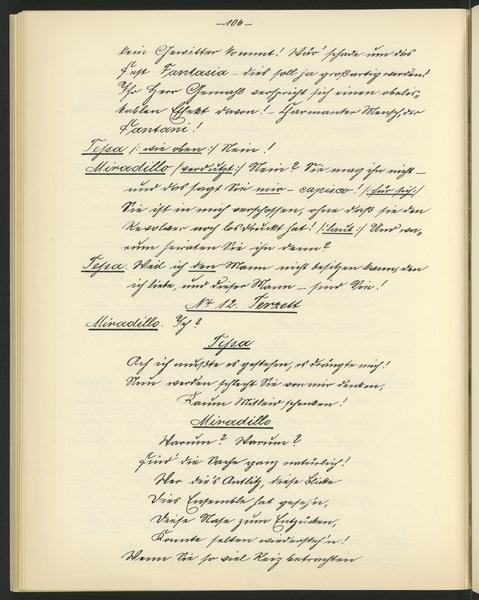 – 106 –
kein Gewitter kommt! Wär' schade um das
Fest Fantasia – dies soll ja großartig werden!
Ihr Herr Gemahl verspricht sich einen
Effekt davon! – Charmanter Mensch, der
Fantani!
Tessa /: wie oben :/ Nein!
Miradillo /: verdutzt :/ Nein? Sie mag ihn nicht –
und das sagt Sie mir – capisco! /: für sich :/
Sie ist in mich verschossen, ohne daß sie den
Revolver noch losdruckt hat! /: laut :/ Und wa-
rum heiraten Sie ihn denn?
Tessa. Weil ich den Mann nicht besitzen kann, den
ich liebe, und dieser Mann – sind Sie!
No 12. Terzett
Miradillo. Ich?
Tessa
Ach ich mußte es gestehen, es drängte mich!
Nun werden schlecht Sie von mir denken,
Kaum Mitleid schenken!
Miradillo
Warum? Warum?
Find' die Sache ganz natürlich!
Wer dies Antlitz, diese Blicke
Dies Ensemble hat geseh'n,
Diese Nase zum Entzücken,
Konnte selten widersteh'n!
Wenn Sie so viel Reiz betrachten